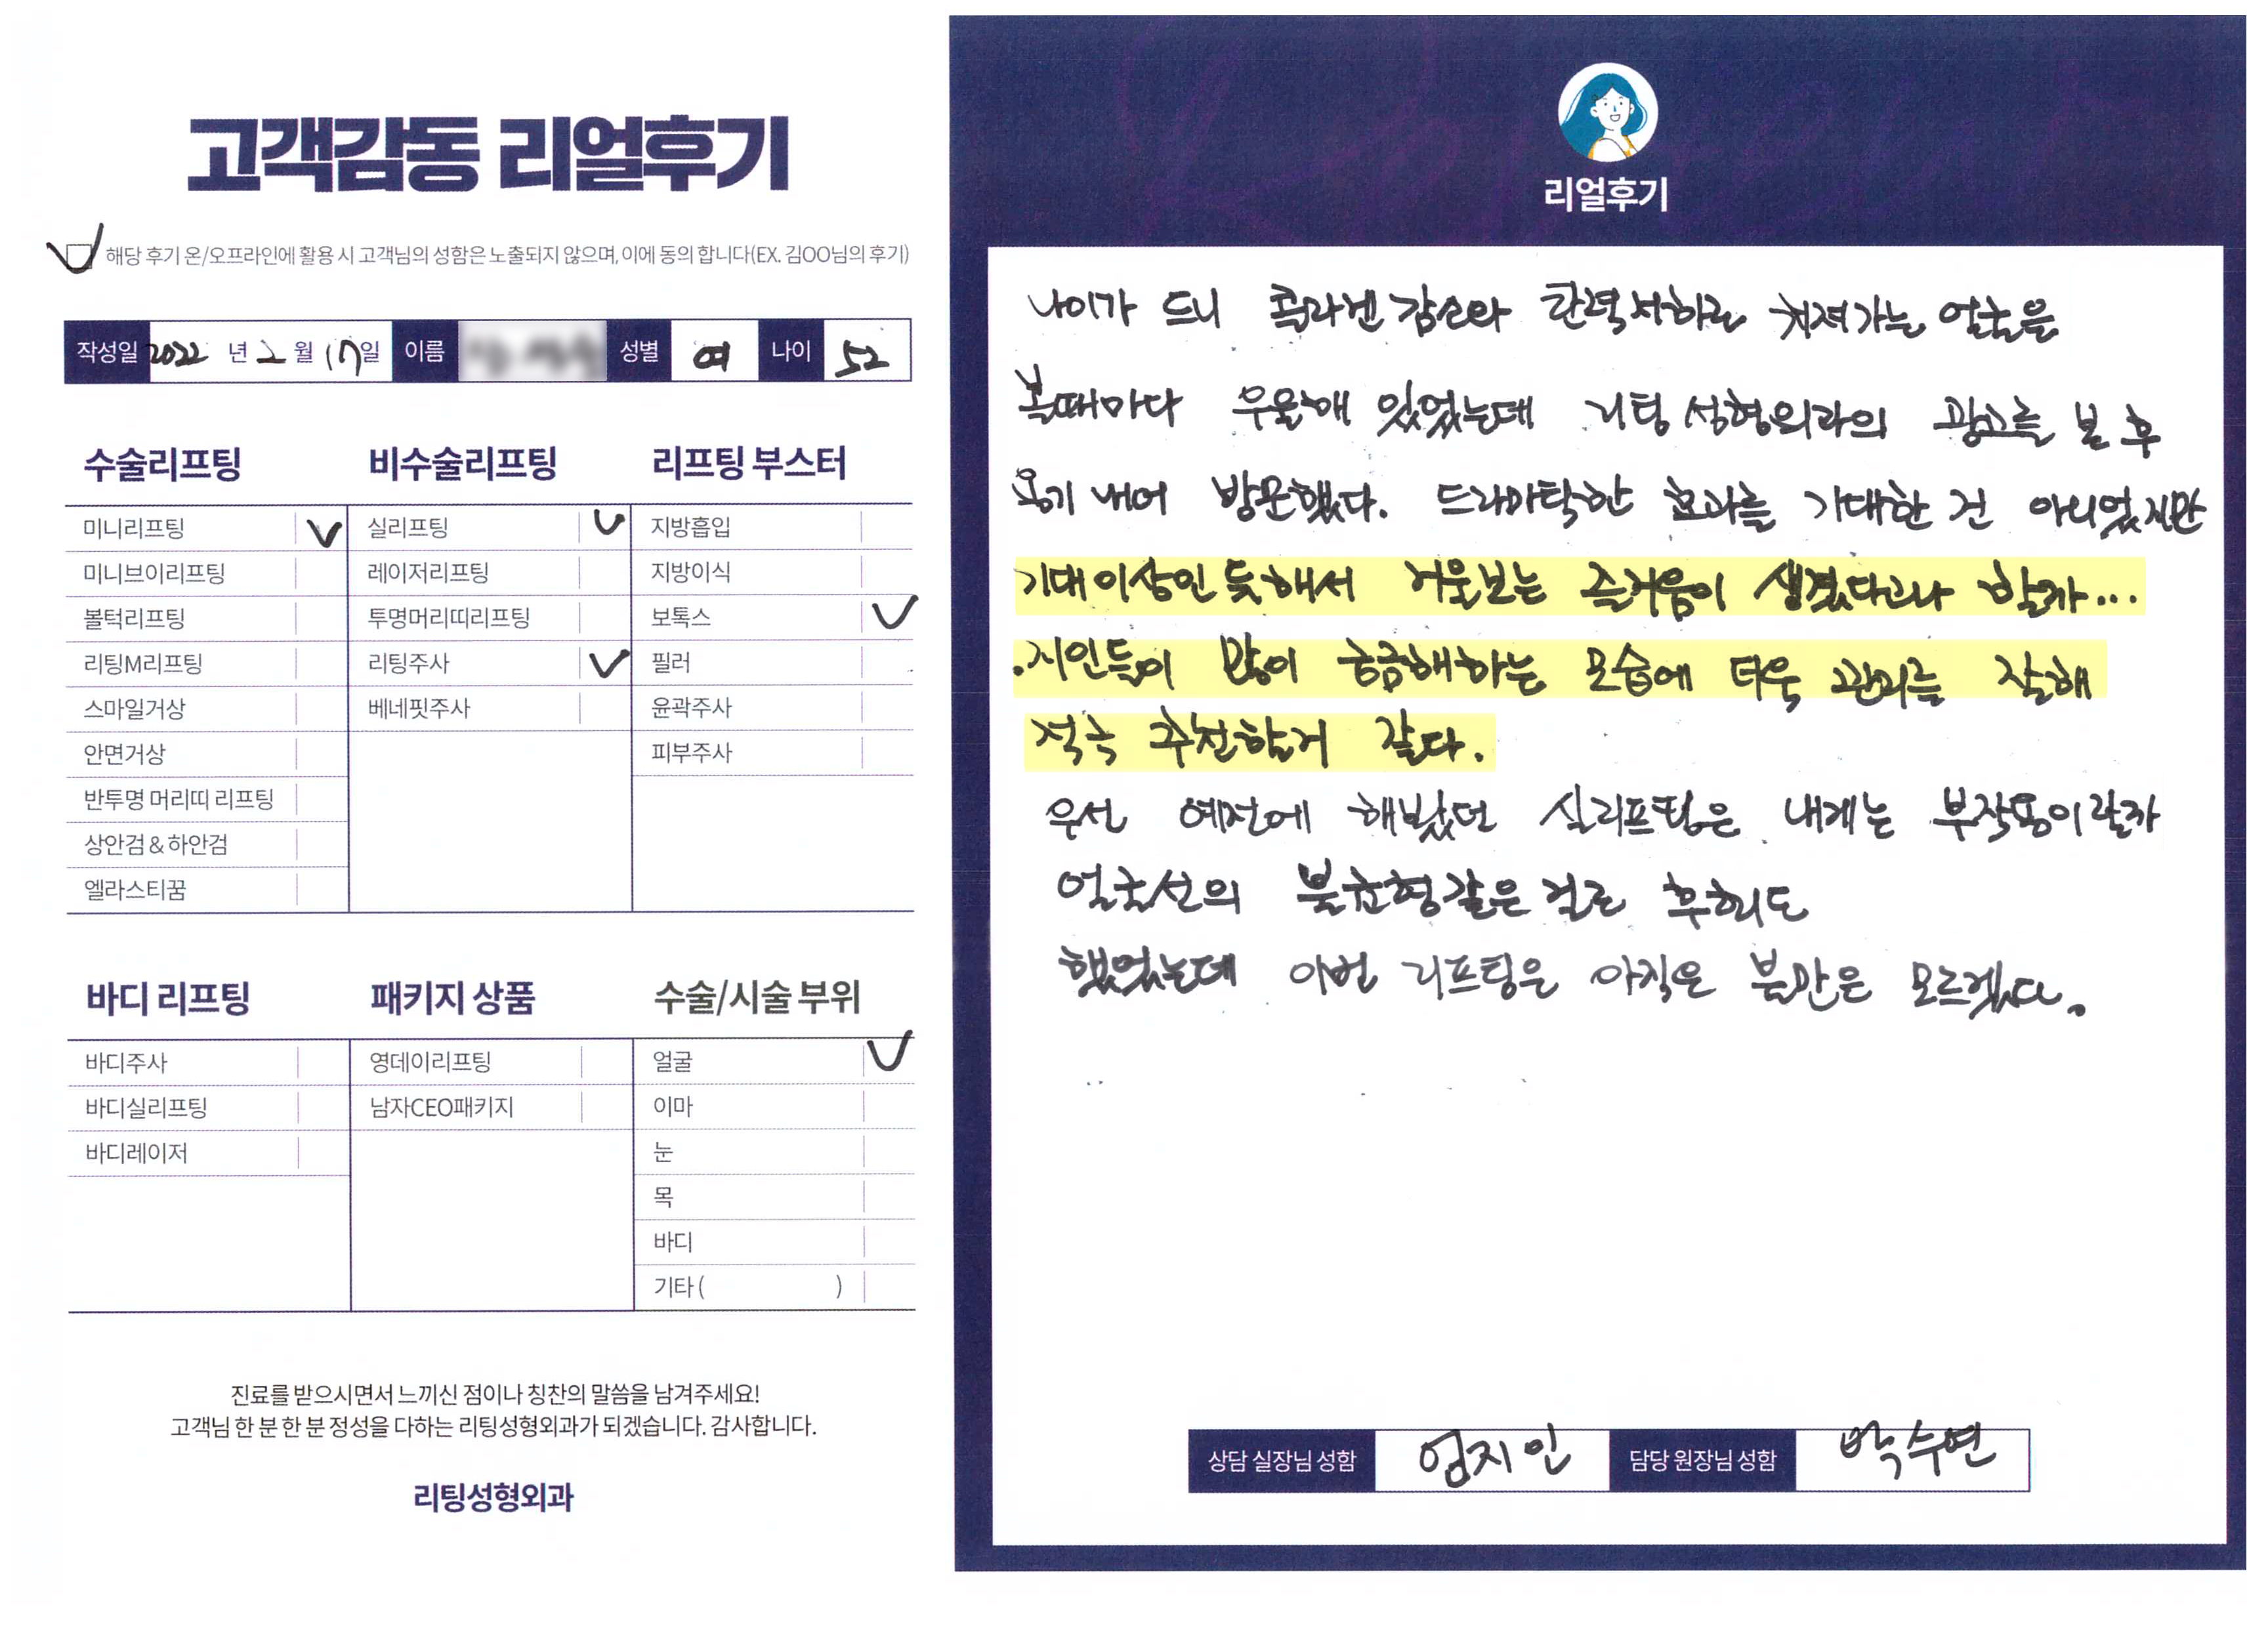 고객감동 리얼후기
해당 후기 온/오프라인에 활용 시 고객님의 성함은 노출되지 않으며, 이에 동의 합니다(EX. 김OO님의 후기)
작성일 2022 년 2 월 17일 이름 성별 여 나이 52
수술리프팅
미니리프팅
미니브이리프팅
볼턱리프팅
리팅M리프팅
스마일거상
안면거상
반투명 머리띠 리프팅
상안검 & 하안검
엘라스티꿈
비수술리프팅
실리프팅
레이저리프팅
투명머리띠리프팅
리팅주사
베네핏주사
리프팅 부스터
지방흡입
지방이식
보톡스
필러
윤곽주사
피부주사
바디 리프팅
바디주사
바디실리프팅
바디레이저
패키지 상품
영데이리프팅
남자CEO패키지
수술/시술 부위
얼굴
이마
눈
목
바디
기타 ( )
진료를 받으시면서 느끼신 점이나 칭찬의 말씀을 남겨주세요!
고객님 한 분 한 분 정성을 다하는 리팅성형외과가 되겠습니다. 감사합니다.
리팅성형외과
리얼후기
나이가 드니 콜라겐 감소와 탄력저하로 쳐져가는 얼굴을
볼때마다 우울해 있었는데 리팅성형외과의 광고를 본 후
용기 내어 방문했다. 드라마틱한 효과를 기대한 건 아니었지만
기대이상인 듯해서 거울보는 즐거움이 생겼다고나 할까...
지인들이 많이 궁금해하는 모습에 더욱 관리를 잘해
적극 추천할거 같다.
우선 예전에 해봤던 실리프팅은 내게는 부작용이랄까
얼굴선의 불균형같은 걸로 후회도
했었는데 이번 리프팅은 아직은 불만은 모르겠다.
상담 실장님 성함 엄지인 담당 원장님 성함 박수연